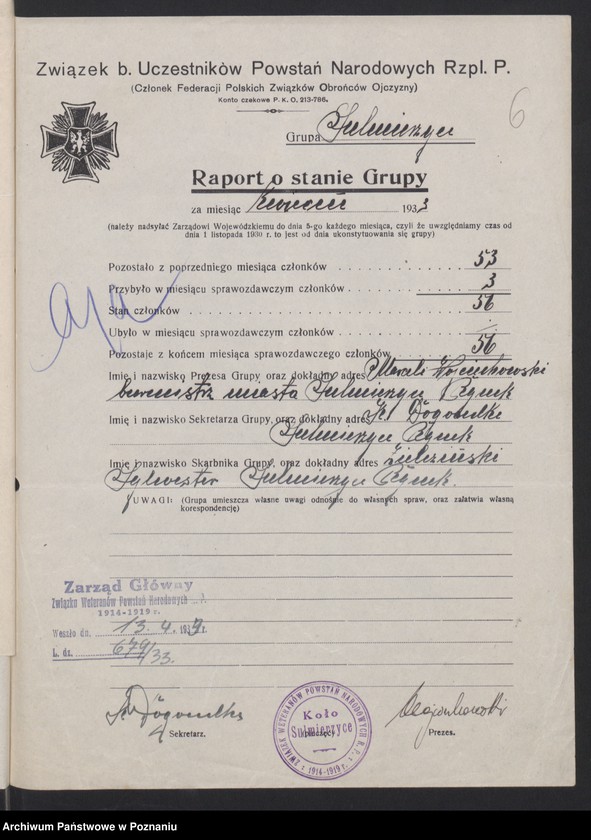 Związek b. Uczestników Powstań Narodowych Rzpl. P.
(Członek Federacji Polskich Związków Obrońców Ojczyzny)
Konto czekowe P. K. O. 213-786.
6
Grupa Sulmierzyce
Raport o stanie Grupy
za miesiąc 1933
(należy nadsyłać Zarządowi Wojewódzkiemu do dnia 5-go każdego miesiąca, czyli że uwzględniamy czas od
dnia 1 listopada 1930 r. to jest od dnia ukonstytuowania się grupy)
Pozostało z poprzedniego miesiąca członków 53
Przybyło w miesiącu sprawozdawczym członków 3
Stan członków 56
Ubyło w miesiącu sprawozdawczym członków
Pozostaje z końcem miesiąca sprawozdawczego członków 56
Imię i nazwisko Prezesa Grupy oraz dokładny adres Marceli Wojciechowski
burmistrz miasta Sulmierzyce Rynek
Imię i nazwisko Sekretarza Grupy, oraz dokładny adres St.
Sulmierzyce Rynek
Imię i nazwisko Skarbnika Grupy, oraz dokładny adres
Sylwester Sulmierzyce Rynek.
UWAGI: (Grupa umieszcza własne uwagi odnośnie do własnych spraw, oraz załatwia własną
korespondencję)
Zarząd Główny
Związku Weteranów Powstań Narodowych
1914-1919 r.
Weszło dn. 13. 4. 1933 r.
L. dz. 679/33.
Sekretarz.
ZWIĄZEK WETERANÓW POWSTAŃ NARODOWYCH R. P. 1914-1919 r.
Koło
Sulmierzyce
(pieczęć)
Wojciechowski
Prezes.
Archiwum Państwowe w Poznaniu